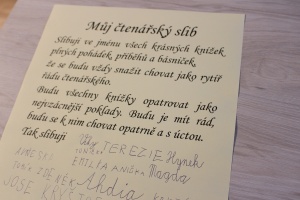 Můj čtenářský slib
Slibuji ve jménu všech krásných knížek,
plných pohádek, příběhů a básniček,
že se budu vždy snažit chovat jako rytíř
řádu čtenářského.
Budu všechny knížky opatrovat jako
nejvzácnější poklady. Budu je mít rád,
budu se k nim chovat opatrně a s úctou.
Tak slibuji
TEREZIE Hynek
EMILIA ANIČKA Magda
ZDENEK
JOSE